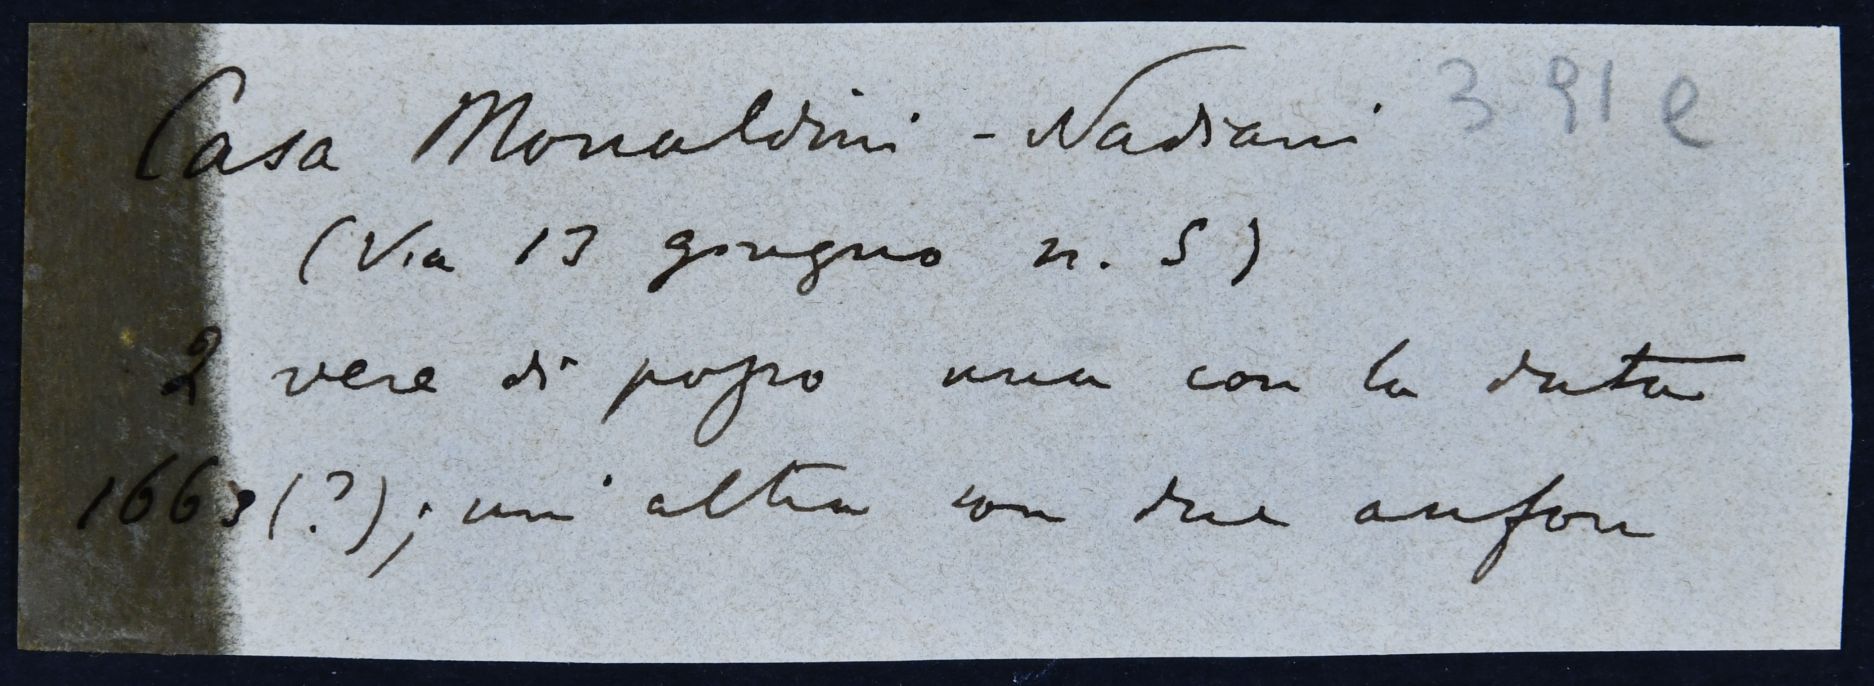 Casa Monaldini - Nadiani 391 e
(Via 13 giugno n. 5)
2 vere di pozzo una con la data
1663 (?); un' altra con due anfore